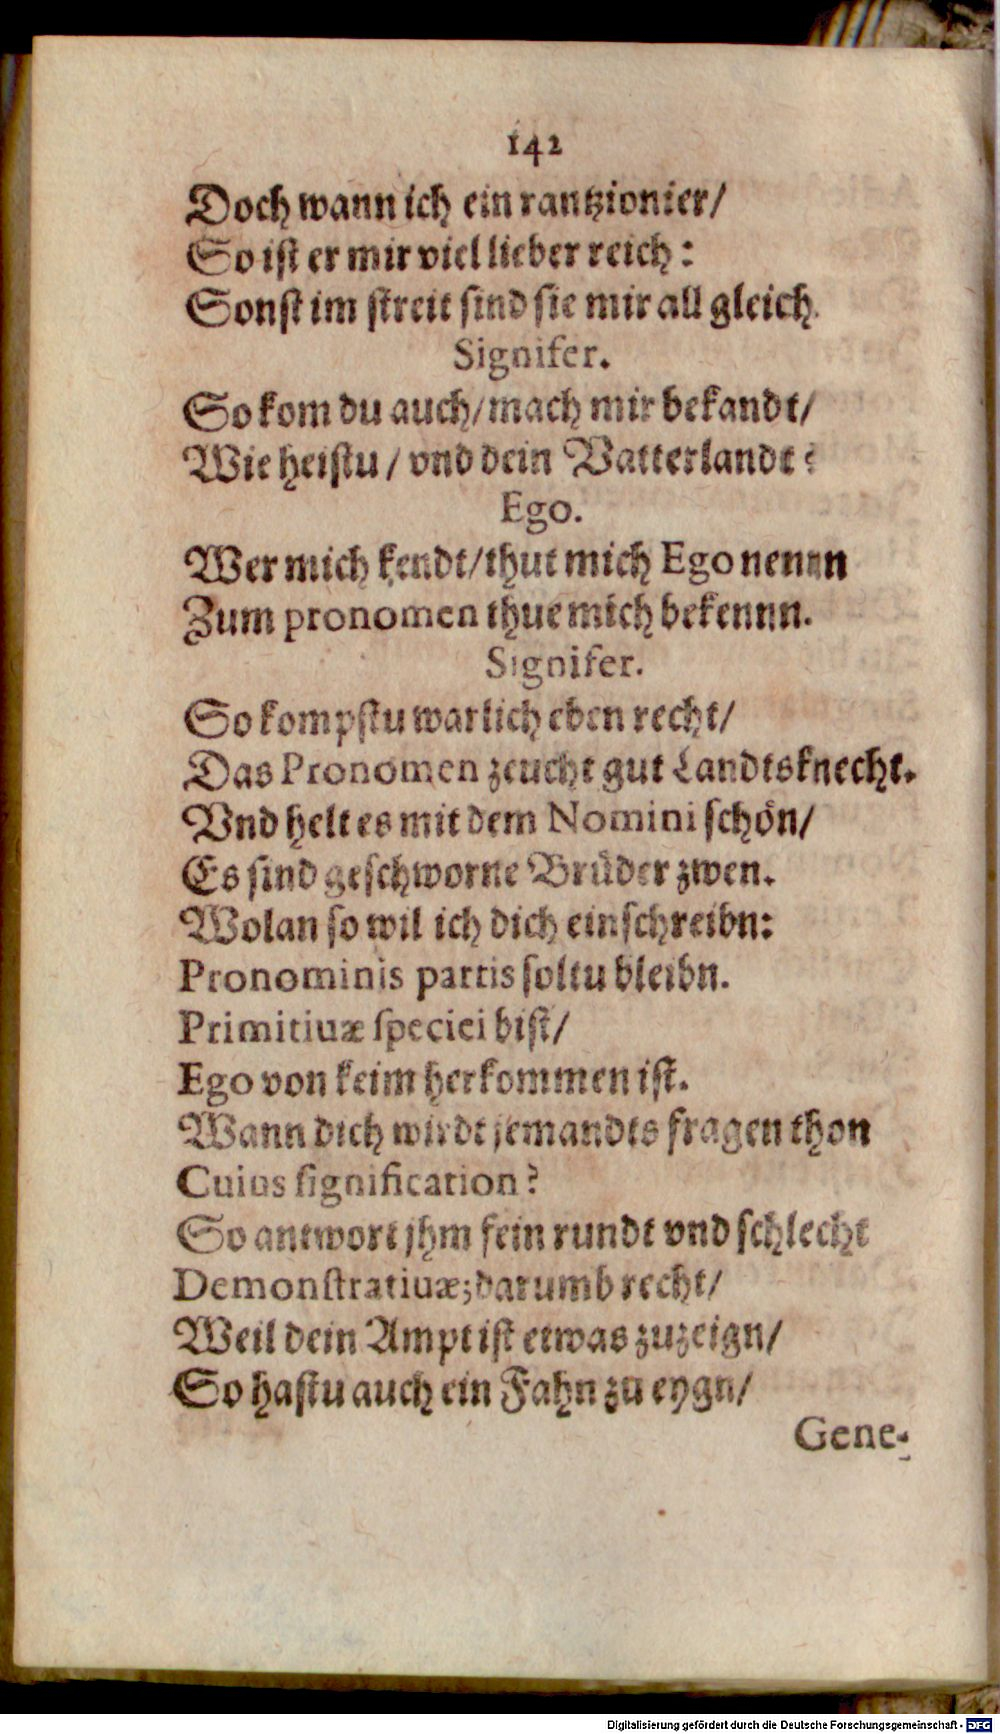 142
Doch wann ich ein rantzionier/
So ist er mir viel lieber reich:
Sonst im streit sind sie mir all gleich.
Signifer.
So kom du auch/ mach mir bekandt/
Wie heistu/ vnd dein Vatterlandt?
Ego.
Wer mich kendt/ thut mich Ego nennn
Zum pronomen thue mich bekennn.
Signifer.
So kompstu warlich eben recht/
Das Pronomen zeucht gut Landtsknecht.
Vnd helt es mit dem Nomini schön/
Es sind geschworne Brüder zwen.
Wolan so wil ich dich einschreibn:
Pronominis partis soltu bleibn.
Primitiuæ speciei bist/
Ego von keim herkommen ist.
Wann dich wirdt jemandts fragen thon
Cuius signification?
So antwort jhm fein rundt vnd schlecht
Demonstratiuæ; darumb recht/
Weil dein Ampt ist etwas zuzeign/
So hastu auch ein Fahn zu eygn/
Gene-
Digitalisierung gefördert durch die Deutsche Forschungsgemeinschaft - DFG